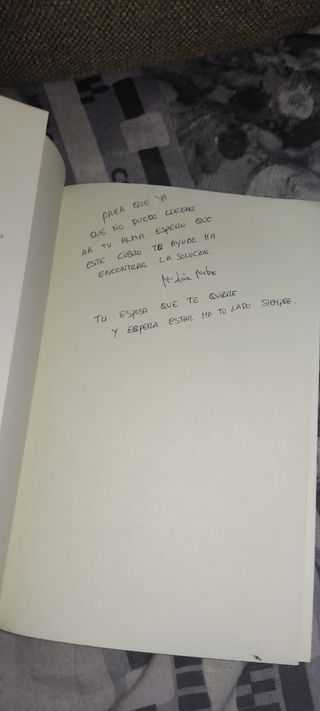 PARA QUE YA
QUE NO PUEDO LLEGAR
HA TU ALMA ESPERO QUE
ESTE LIBRO TE AYUDE HA
ENCONTRAR LA SOLUCION.
TU ESPOSA QUE TE QUIERE
Y ESPERA ESTAR HA TU LADO SIEMPRE.